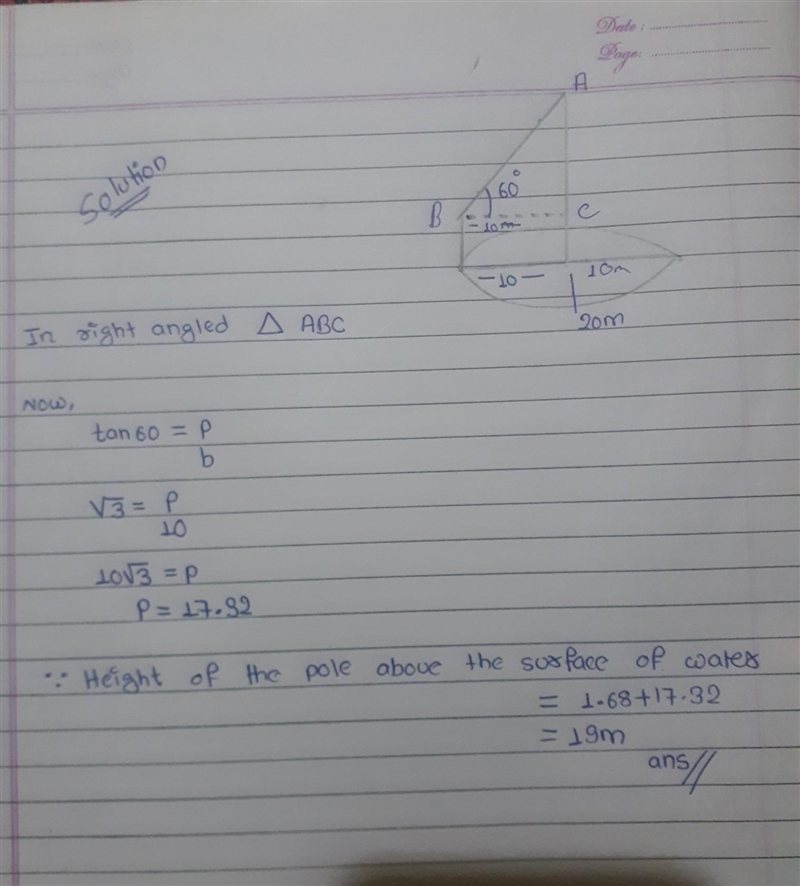 Date :
Page:
A
Solution
60°
B
C
-10m-
-10-
10m
20m
In right angled △ ABC
Now,
tan60 = P
b
√3 = P
10
10√3 = P
P = 17.32
∵ Height of the pole above the surface of water
= 1.68+17.32
= 19m
ans//